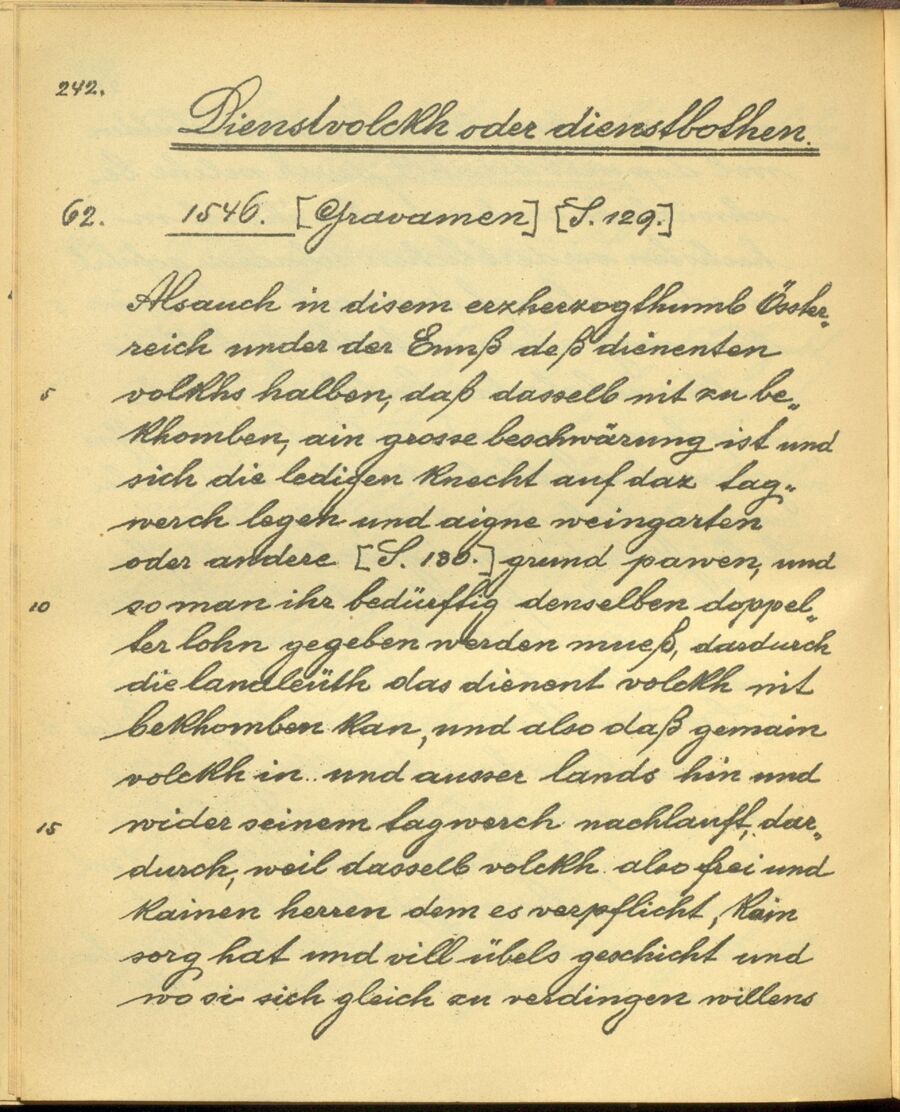 242.
Dienstvolckh oder dienstbothen.
62. 1546. [Gravamen] [S. 129.]
Alsauch in disem erzherzogthumb Össter„
reich under der Ennß deß dienenten
5 volkhs halben, daß dasselb nit zu be„
khomben, ain grosse beschwärung ist und
sich die ledigen knecht auf daz tag„
werch legen und aigne weingarten
oder andere [S. 130.] grund pawen, und
10 so man ihr bedürftig denselben doppel„
ter lohn gegeben werden mueß, dardurch
die landleüth das dienent volckh nit
bekhomben kan, und also daß gemain
volckh in und ausser lands hin und
15 wider seinem tagwerch nachlauft, dar„
durch, weil dasselb volckh also frei und
kainen herren dem es verpflicht, kain
sorg hat und vill übels geschicht und
wo si sich gleich zu verdingen willens